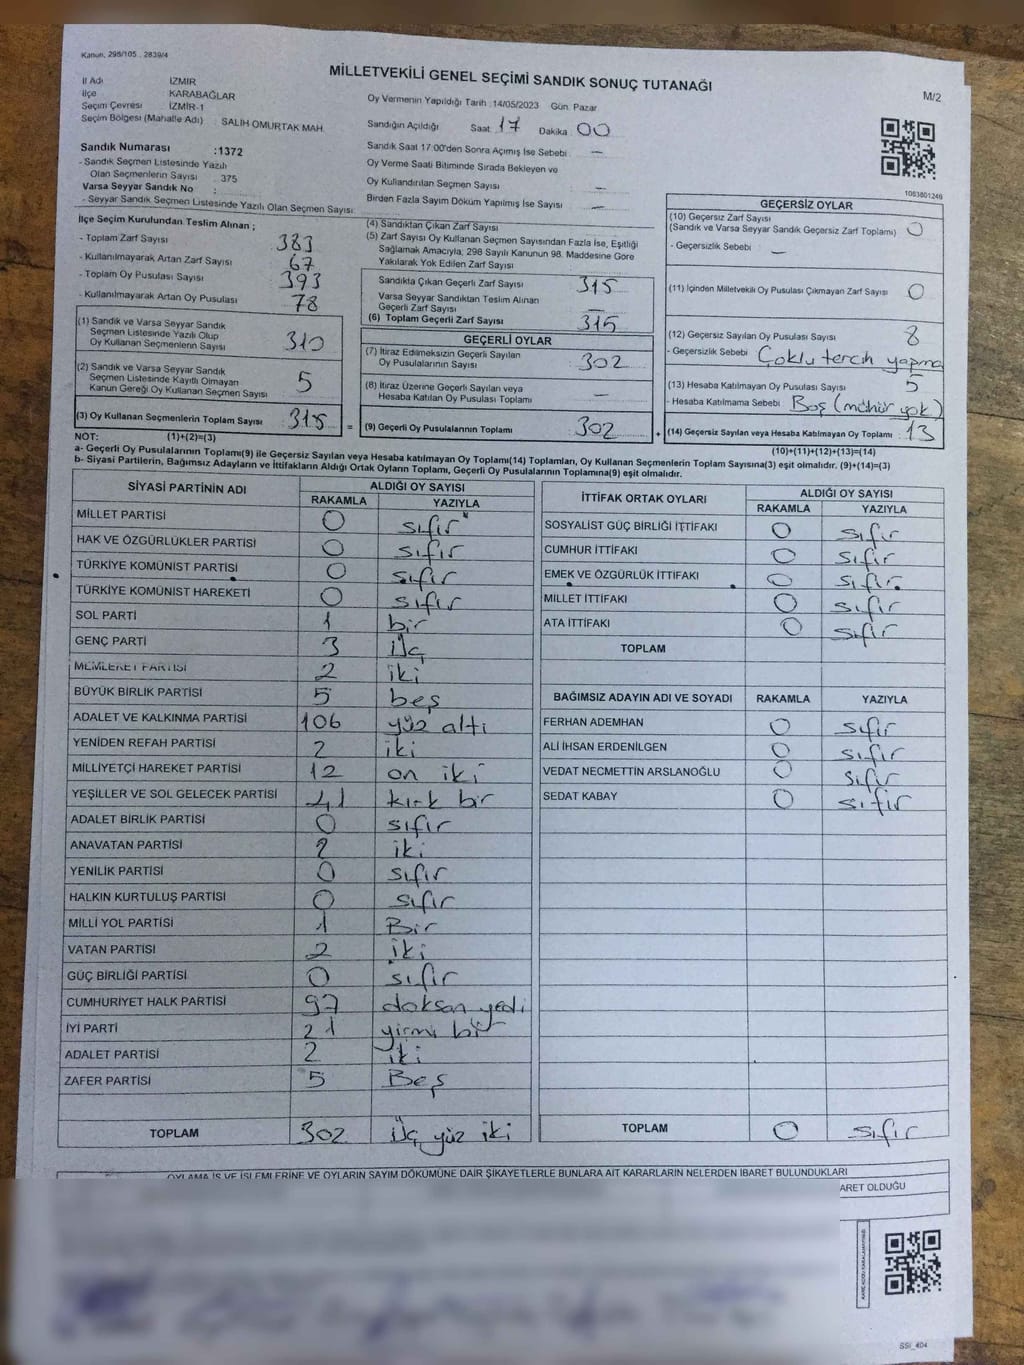 Kanun, 298/105 , 2839/4
MİLLETVEKİLİ GENEL SEÇİMİ SANDIK SONUÇ TUTANAĞI
M/2
İl Adı İZMİR
İlçe KARABAĞLAR
Seçim Çevresi İZMİR-1
Seçim Bölgesi (Mahalle Adı) : SALİH OMURTAK MAH.
Oy Vermenin Yapıldığı Tarih :14/05/2023 Gün: Pazar
Sandığın Açıldığı Saat : 17 Dakika : 00
Sandık Saat 17:00'den Sonra Açımış İse Sebebi : —
Oy Verme Saati Bitiminde Sırada Bekleyen ve
Oy Kullandırılan Seçmen Sayısı : —
Birden Fazla Sayım Döküm Yapılmış İse Sayısı : —
Sandık Numarası :1372
- Sandık Seçmen Listesinde Yazılı
Olan Seçmenlerin Sayısı : 375
Varsa Seyyar Sandık No :
- Seyyar Sandık Seçmen Listesinde Yazılı Olan Seçmen Sayısı :
1083801249
İlçe Seçim Kurulundan Teslim Alınan ;
- Toplam Zarf Sayısı : 383
- Kullanılmayarak Artan Zarf Sayısı : 67
- Toplam Oy Pusulası Sayısı : 393
- Kullanılmayarak Artan Oy Pusulası : 78
(1) Sandık ve Varsa Seyyar Sandık
Seçmen Listesinde Yazılı Olup
Oy Kullanan Seçmenlerin Sayısı : 310
(2) Sandık ve Varsa Seyyar Sandık
Seçmen Listesinde Kayıtlı Olmayan
Kanun Gereği Oy Kullanan Seçmen Sayısı : 5
(3) Oy Kullanan Seçmenlerin Toplam Sayısı : 315 =
(4) Sandıktan Çıkan Zarf Sayısı
(5) Zarf Sayısı Oy Kullanan Seçmen Sayısından Fazla İse, Eşitliği
Sağlamak Amacıyla, 298 Sayılı Kanunun 98. Maddesine Göre
Yakılarak Yok Edilen Zarf Sayısı :
Sandıkta Çıkan Geçerli Zarf Sayısı : 315
Varsa Seyyar Sandıktan Teslim Alınan
Geçerli Zarf Sayısı : —
(6) Toplam Geçerli Zarf Sayısı : 315
GEÇERLİ OYLAR
(7) İtiraz Edilmeksizin Geçerli Sayılan
Oy Pusulalarının Sayısı : 302
(8) İtiraz Üzerine Geçerli Sayılan veya
Hesaba Katılan Oy Pusulası Toplamı : —
(9) Geçerli Oy Pusulalarının Toplamı : 302 +
GEÇERSİZ OYLAR
(10) Geçersiz Zarf Sayısı
(Sandık ve Varsa Seyyar Sandık Geçersiz Zarf Toplamı) : 0
- Geçersizlik Sebebi : —
(11) İçinden Milletvekili Oy Pusulası Çıkmayan Zarf Sayısı : 0
(12) Geçersiz Sayılan Oy Pusulası Sayısı : 8
- Geçersizlik Sebebi : Çoklu tercih yapma
(13) Hesaba Katılmayan Oy Pusulası Sayısı : 5
- Hesaba Katılmama Sebebi : Boş (mühür yok)
(14) Geçersiz Sayılan veya Hesaba Katılmayan Oy Toplamı : 13
NOT: (1)+(2)=(3)
(10)+(11)+(12)+(13)=(14)
a- Geçerli Oy Pusulasının Toplamı(9) ile Geçersiz Sayılan veya Hesaba katılmayan Oy Toplamı(14) Toplamları, Oy Kullanan Seçmenlerin Toplam Sayısına(3) eşit olmalıdır. (9)+(14)=(3)
b- Siyasi Partilerin, Bağımsız Adayların ve İttifakların Aldığı Ortak Oyların Toplamı, Geçerli Oy Pusulalarının Toplamına(9) eşit olmalıdır.
SİYASİ PARTİNİN ADI ALDIĞI OY SAYISI
RAKAMLA YAZIYLA
MİLLET PARTİSİ 0 sıfır
HAK VE ÖZGÜRLÜKLER PARTİSİ 0 sıfır
TÜRKİYE KOMÜNİST PARTİSİ 0 sıfır
TÜRKİYE KOMÜNİST HAREKETİ 0 sıfır
SOL PARTİ 1 bir
GENÇ PARTİ 3 üç
MEMLEKET PARTİSİ 2 iki
BÜYÜK BİRLİK PARTİSİ 5 beş
ADALET VE KALKINMA PARTİSİ 106 yüz altı
YENİDEN REFAH PARTİSİ 2 iki
MİLLİYETÇİ HAREKET PARTİSİ 12 on iki
YEŞİLLER VE SOL GELECEK PARTİSİ 41 kırk bir
ADALET BİRLİK PARTİSİ 0 sıfır
ANAVATAN PARTİSİ 2 iki
YENİLİK PARTİSİ 0 sıfır
HALKIN KURTULUŞ PARTİSİ 0 sıfır
MİLLİ YOL PARTİSİ 1 Bir
VATAN PARTİSİ 2 iki
GÜÇ BİRLİĞİ PARTİSİ 0 sıfır
CUMHURİYET HALK PARTİSİ 97 doksan yedi
İYİ PARTİ 21 yirmi bir
ADALET PARTİSİ 2 iki
ZAFER PARTİSİ 5 Beş
TOPLAM 302 Üç yüz iki
İTTİFAK ORTAK OYLARI ALDIĞI OY SAYISI
RAKAMLA YAZIYLA
SOSYALİST GÜÇ BİRLİĞİ İTTİFAKI 0 sıfır
CUMHUR İTTİFAKI 0 sıfır
EMEK VE ÖZGÜRLÜK İTTİFAKI 0 sıfır
MİLLET İTTİFAKI 0 sıfır
ATA İTTİFAKI 0 sıfır
TOPLAM
BAĞIMSIZ ADAYIN ADI VE SOYADI RAKAMLA YAZIYLA
FERHAN ADEMHAN 0 sıfır
ALİ İHSAN ERDENİLGEN 0 sıfır
VEDAT NECMETTİN ARSLANOĞLU 0 sıfır
SEDAT KABAY 0 sıfır
TOPLAM 0 sıfır
OYLAMA İŞ VE İŞLEMLERİNE VE OYLARIN SAYIM DÖKÜMÜNE DAİR ŞİKAYETLERLE BUNLARA AİT KARARLARIN NELERDEN İBARET BULUNDUKLARI
ARET OLDUĞU
SSİ_404